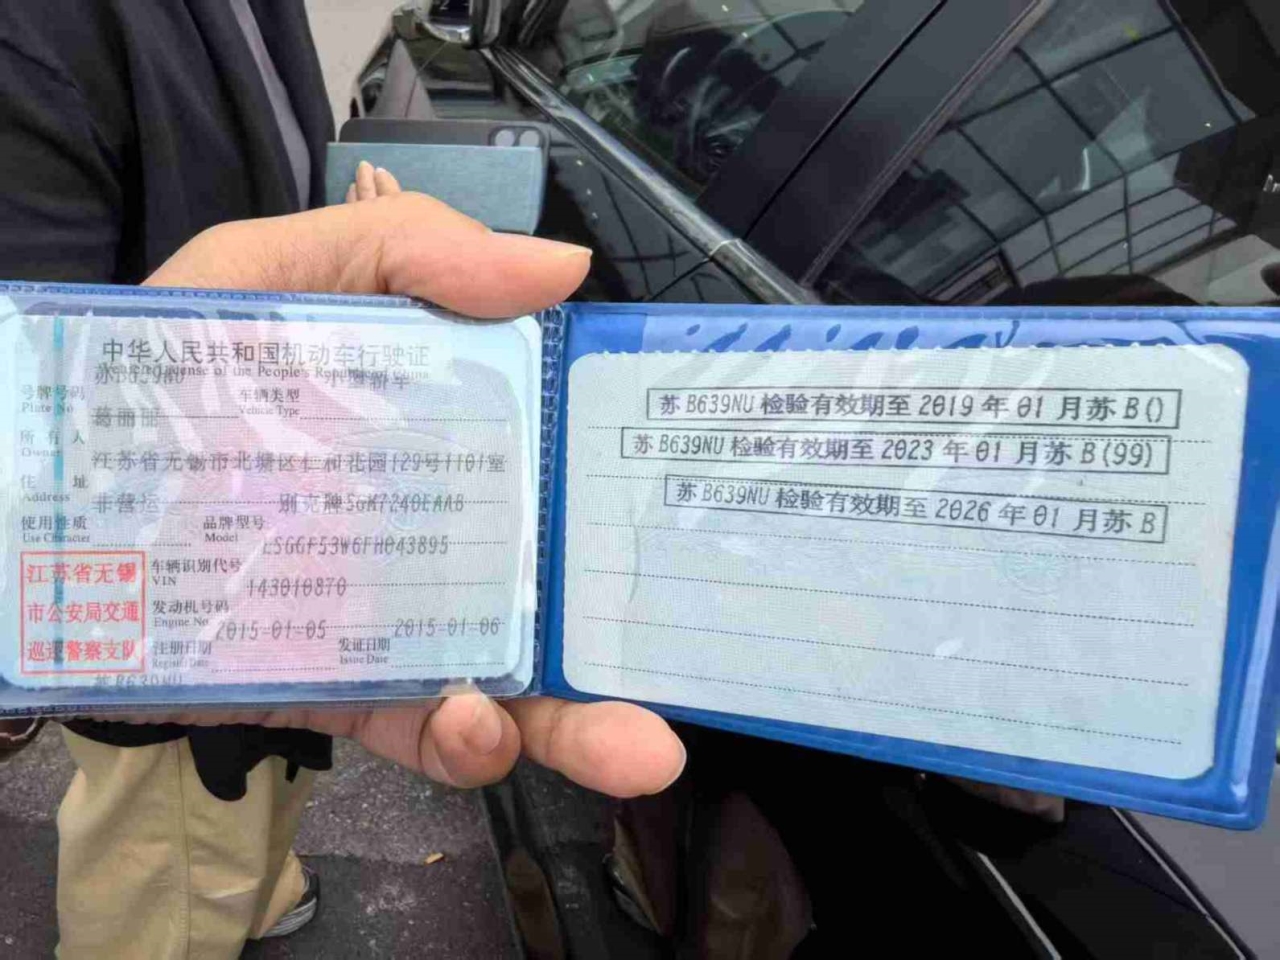 中华人民共和国机动车行驶证
Vehicle License of the People's Republic of China
号牌号码
Plate No.
苏B639NU
车辆类型
Vehicle Type
小型轿车
所有人
Owner
葛丽
住址
Address
江苏省无锡市北塘区仁和花园129号1101室
使用性质
Use Character
非营运
品牌型号
Model
别克牌SGM7240EAAB
江苏省无锡
市公安局交通
巡逻警察支队
车辆识别代号
VIN
LSGGF53W6FH043895
发动机号码
Engine No.
143010870
注册日期
Register Date
2015-01-05
发证日期
Issue Date
2015-01-06
苏B639NU
苏B639NU 检验有效期至 2019 年 01 月苏 B()
苏B639NU 检验有效期至 2023 年 01 月苏 B(99)
苏B639NU 检验有效期至 2026 年 01 月苏 B